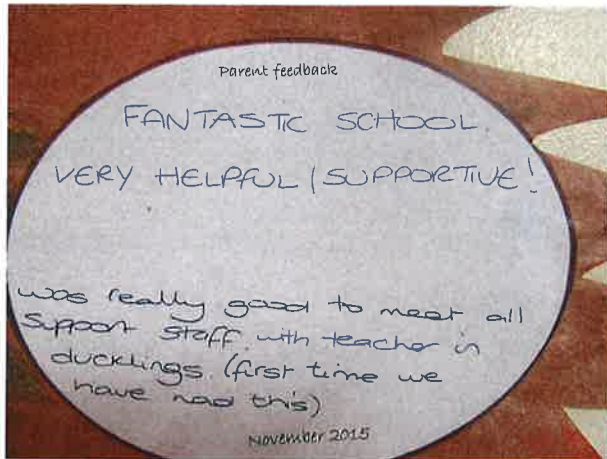 Parent feedback
FANTASTIC SCHOOL.
VERY HELPFUL / SUPPORTIVE!
was really good to meet all
support staff. with teacher in
ducklings. (first time we
have had this)
November 2015